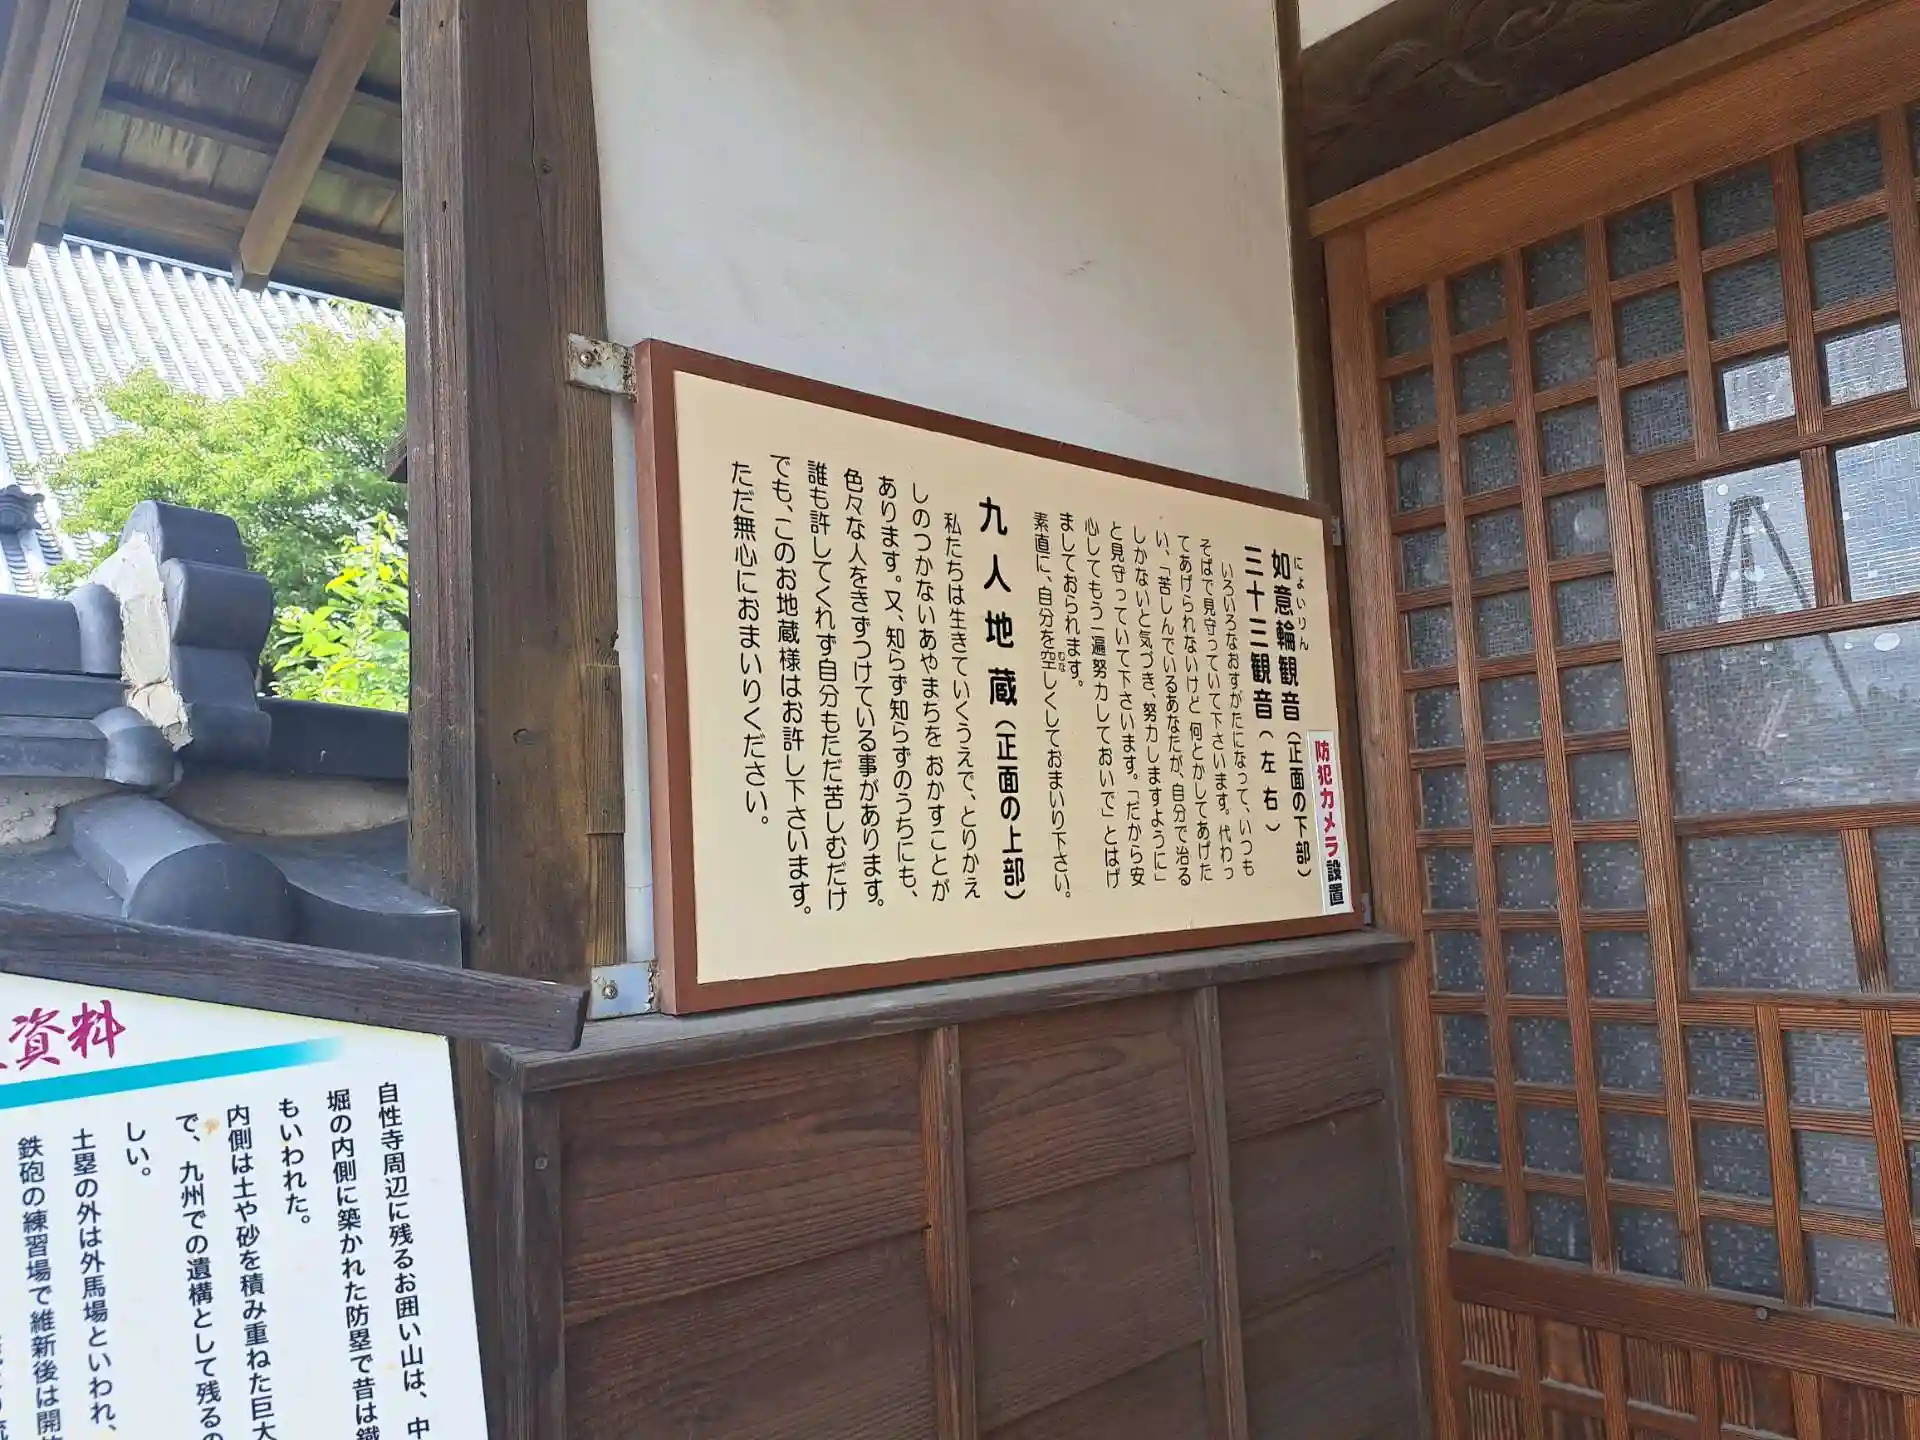 如意輪観音（正面の下部）
にょいりん
三十三観音（左右）
いろいろなおすがたになって、いつも
そばで見守っていて下さいます。代わっ
てあげられないけど 何とかしてあげた
い、「苦しんでいるあなたが、自分で治る
しかないと気づき、努力しますように」
と見守っていて下さいます。「だから安
心してもう一遍努力しておいで」とはげ
ましておられます。
素直に、自分を空しくしておまいり下さい。
むな
九人地蔵（正面の上部）
私たちは生きていくうえで、とりかえ
しのつかないあやまちを おかすことが
あります。又、知らず知らずのうちにも、
色々な人をきずつけている事があります。
誰も許してくれず自分もただ苦しむだけ
でも、このお地蔵様はお許し下さいます。
ただ無心におまいりください。
防犯カメラ設置
資料
自性寺周辺に残るお囲い山は、中
堀の内側に築かれた防塁で昔は鐵
もいわれた。
内側は土や砂を積み重ねた巨大
で、九州での遺構として残るの
しい。
土塁の外は外馬場といわれ、
鉄砲の練習場で維新後は開